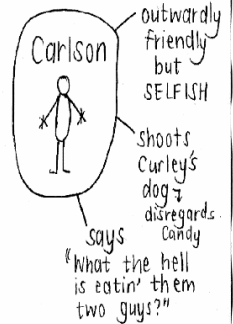 Carlson
outwardly
friendly
but
SELFISH
shoots
Curley's
dog &
disregards
Candy
says
"What the hell
is eatin' them
two guys?"